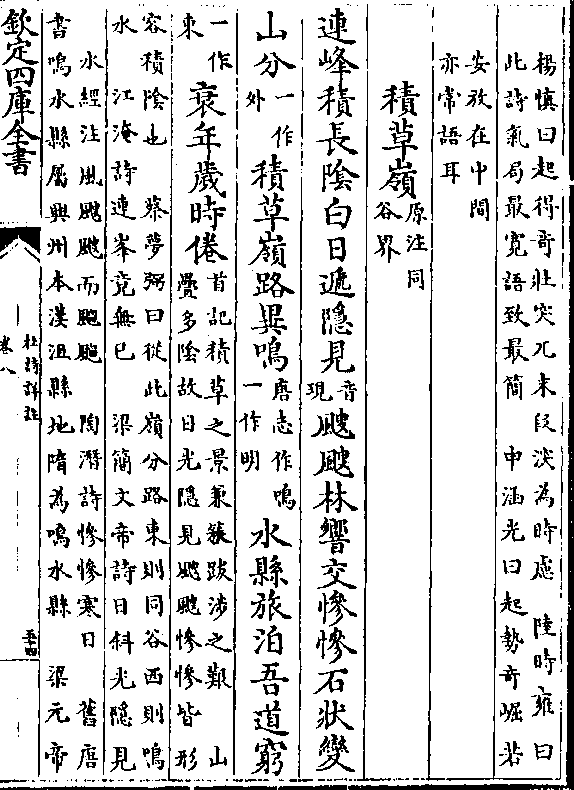 楊慎曰起得奇壯突兀末段淡為時慮　陸時雍曰
此詩氣局最寛語致最簡　申涵光曰起勢奇崛若
安放在中間
亦常語耳
積草嶺原注同
谷界
連峰積長陰白日遞隱見音
現颼颼林響交慘慘石狀變
山分一作
外積草嶺路異鳴唐志作鳴
一作明水縣旅泊吾道窮
一作
東衰年歲時倦首記積草之景兼䉤跋涉之艱　山
疊多陰故日光隱見颼颼慘慘皆形
容積陰也　蔡夢弼曰從此嶺分路東則同谷西則鳴
水　江淹詩連峯竟無已　梁簡文帝詩日斜光隱見
水經注風颼颼而飀飀　陶潛詩慘慘寒日　舊唐
書鳴水縣屬興州本漢沮縣地隋為鳴水縣　梁元帝
欽定四庫全書
杜詩詳註
卷八
五十四